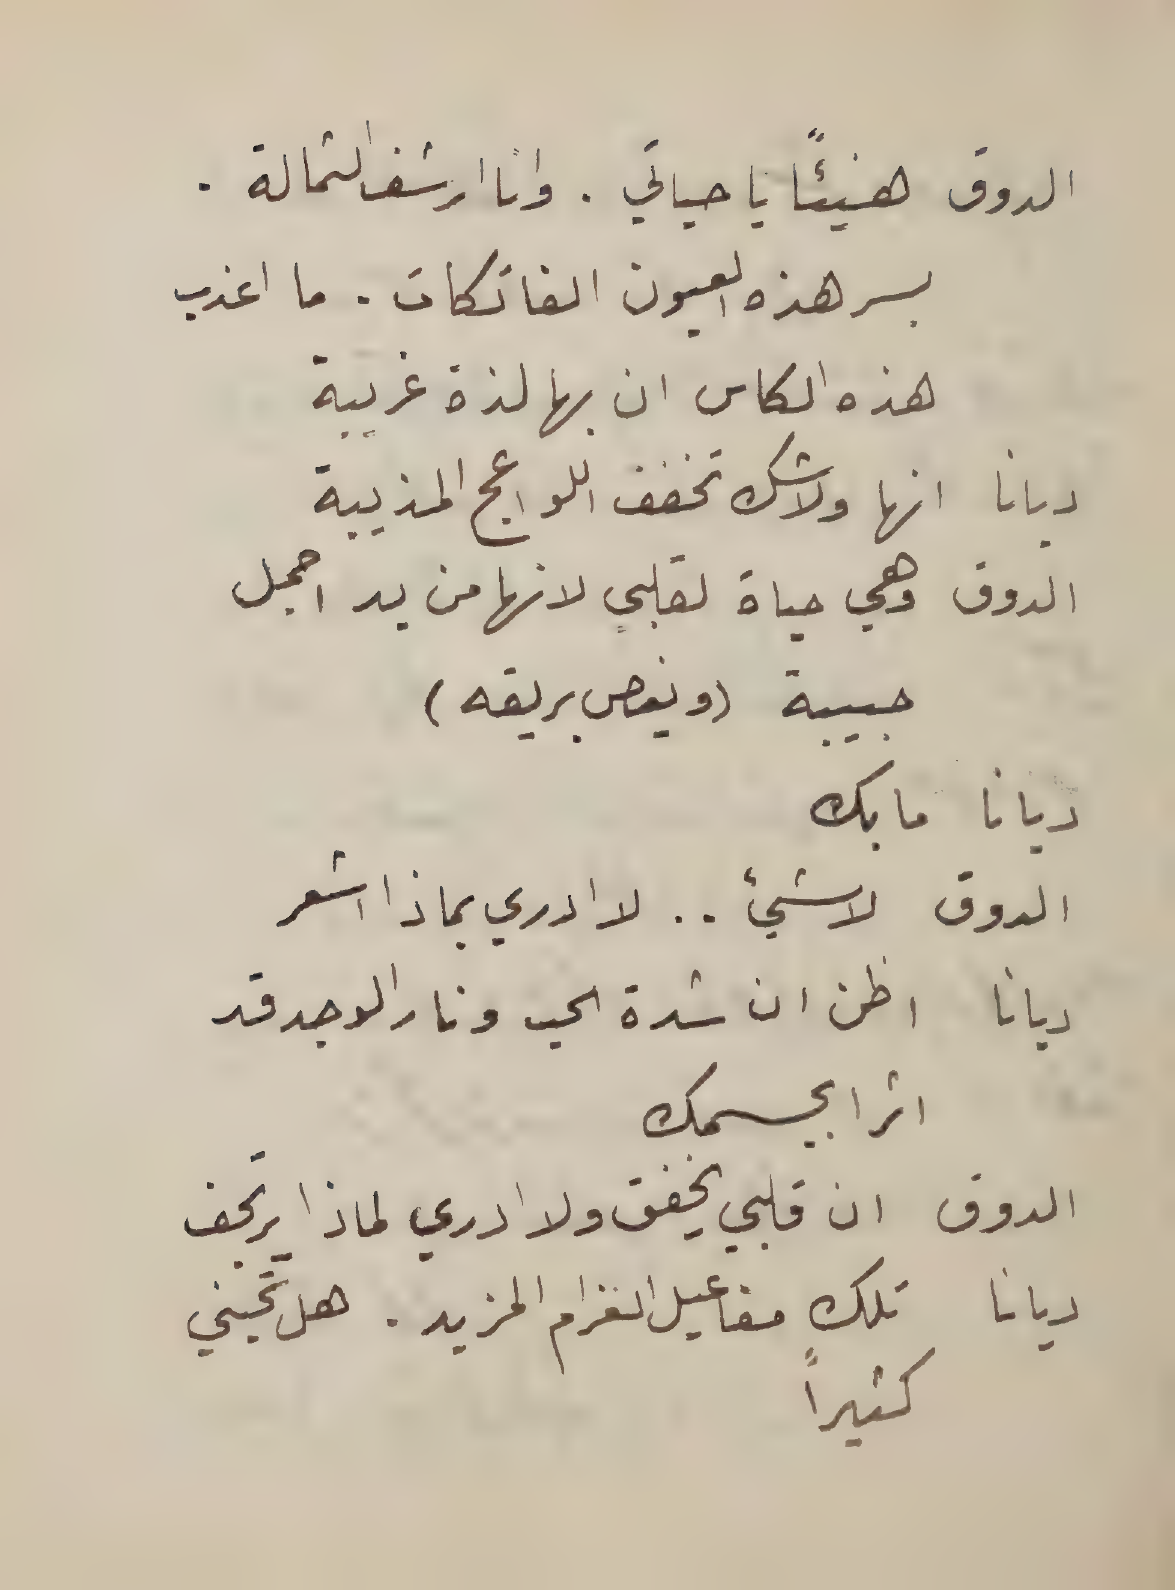 الدوق هنيئًا يا حياتي . وانا ارشف الثمالة .
بسر هذه العيون الفاتكات . ما اعذب
هذه الكاس ان بها لذة غريبة
ديانا انها ولاشك تخفف اللواعج المذيبة
الدوق وهي حياة لقلبي لانها من يد اجمل
حبيبة (ويغص بريقه)
ديانا ما بك
الدوق لاشئ .. لا ادري بماذا اشعر
ديانا اظن ان شدة الحب ونار الوجد قد
اثرا بجسمك
الدوق ان قلبي يخفق ولا ادري لماذا يرتجف
ديانا تلك مفاعيل الغرام المزيد . هل تحبني
كثيراً